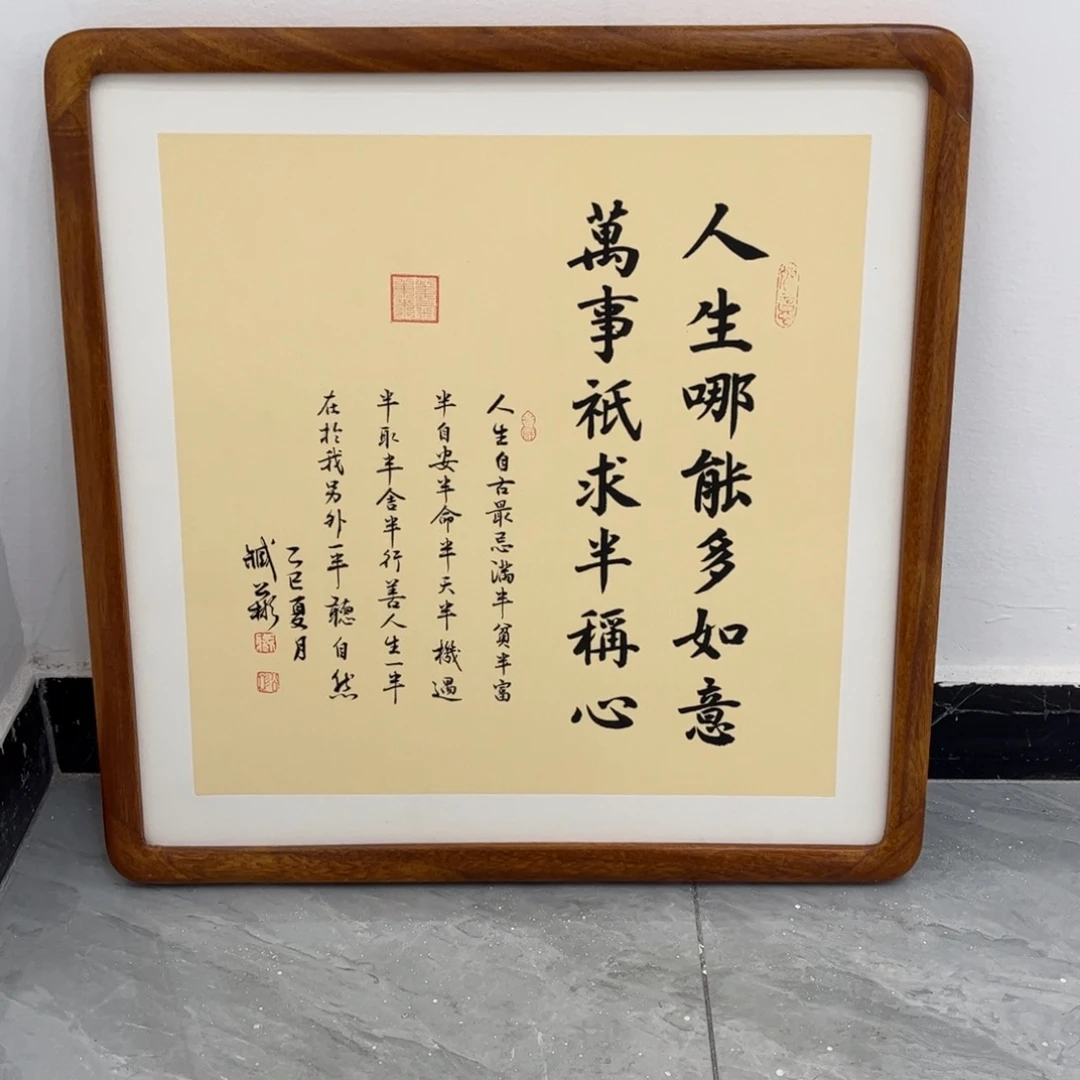 人生哪能多如意
萬事祇求半稱心
人生自古最忌满半貧半富
半自安半命半天半機遇
半取半舍半行善人生一半
在於我另外一半聽自然
乙巳夏月
臧